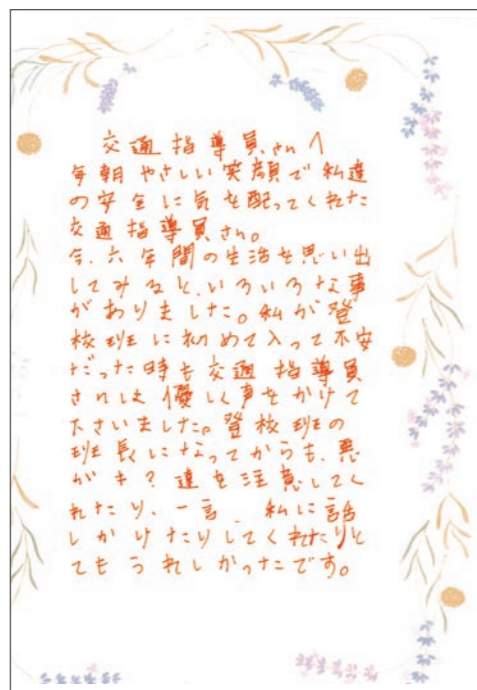 交通指導員さんへ
毎朝やさしい笑顔で私達
の安全に気を配ってくれた
交通指導員さん。
今、六年間の生活を思い出
してみると、いろいろな事
がありました。私が登
校班に初めて入って不安
だった時も交通指導員
さんは優しく声をかけて
下さいました。登校班の
班長になってからも、悪
がき?達を注意してく
れたり、一言、私に話
しかけたりしてくれたりと
てもうれしかったです。